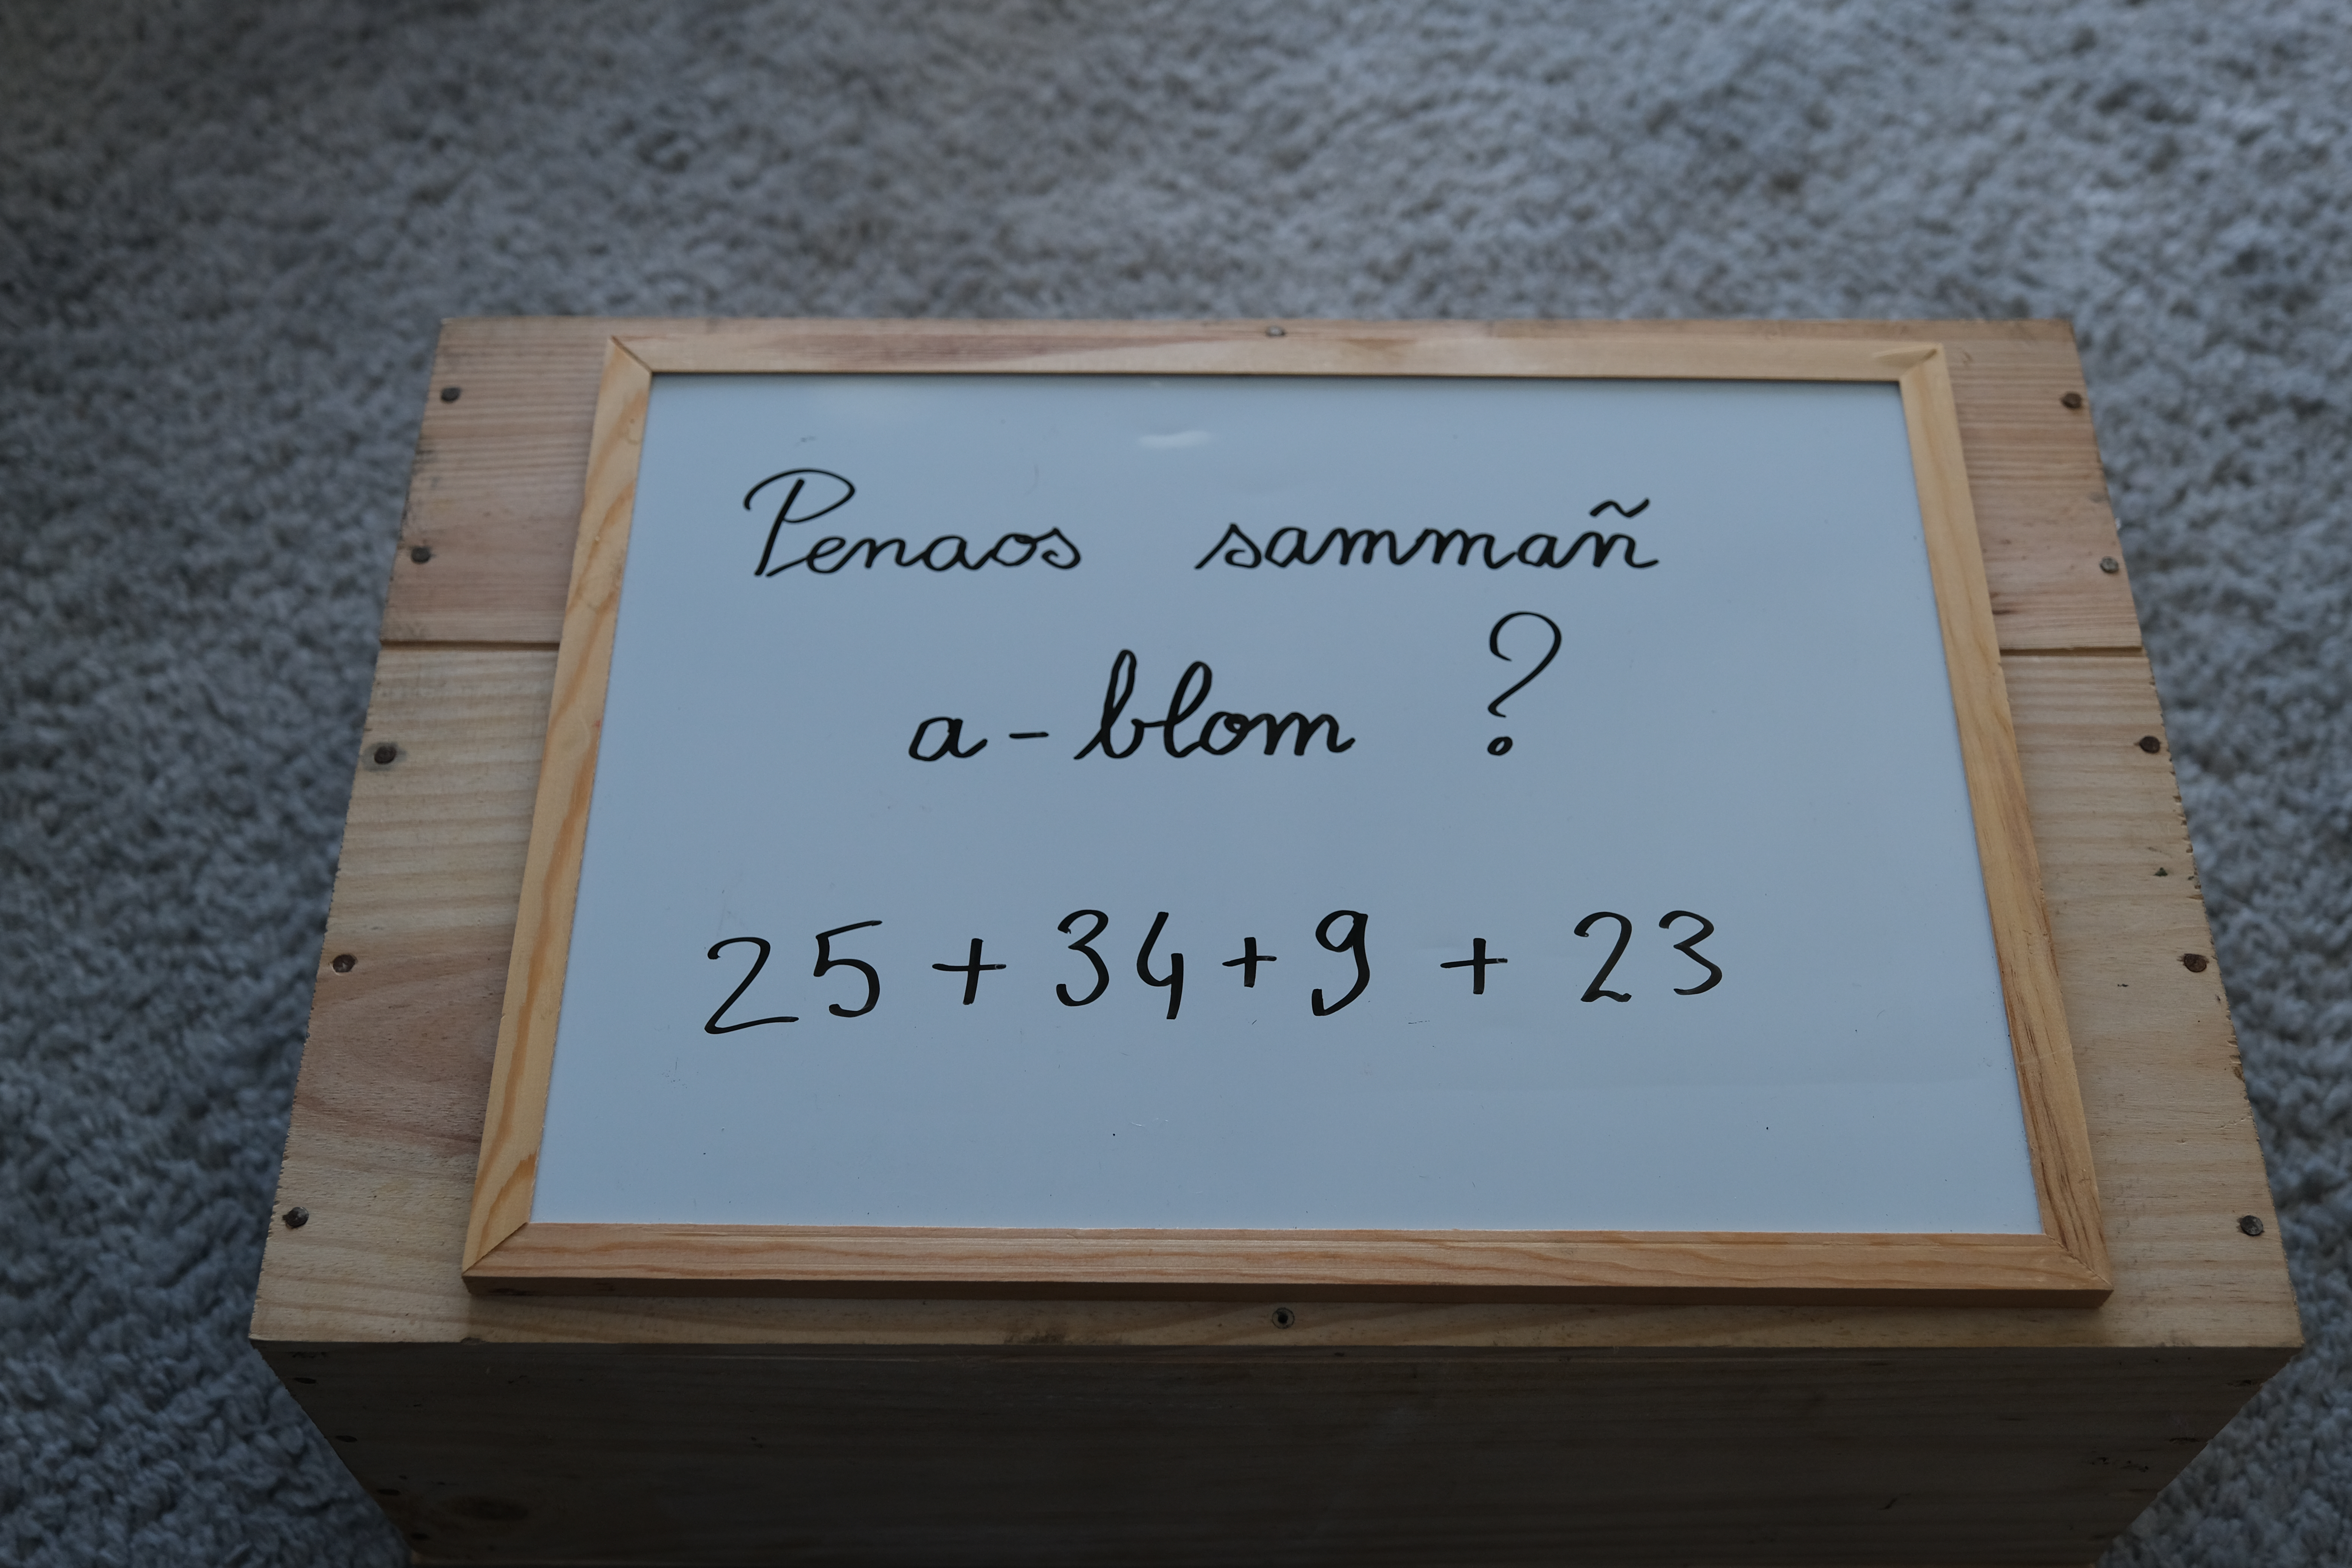 Penaos sammañ
a-blom ?
25 + 34 + 9 + 23